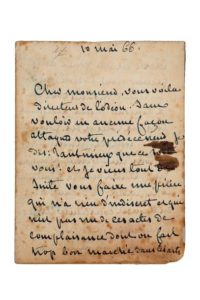 10 mai 66.
Cher monsieur, vous voilà
directeur de l'odéon. Sans
vouloir en aucune façon
attaquer votre prédécesseur je
dis: tant mieux que ce
vous! et je viens tout de
suite vous faire une prière
qui n'a rien d'indiscret et qui
n'est pas un de ces actes de
complaisance dont on fait
trop bon marché dans les arts